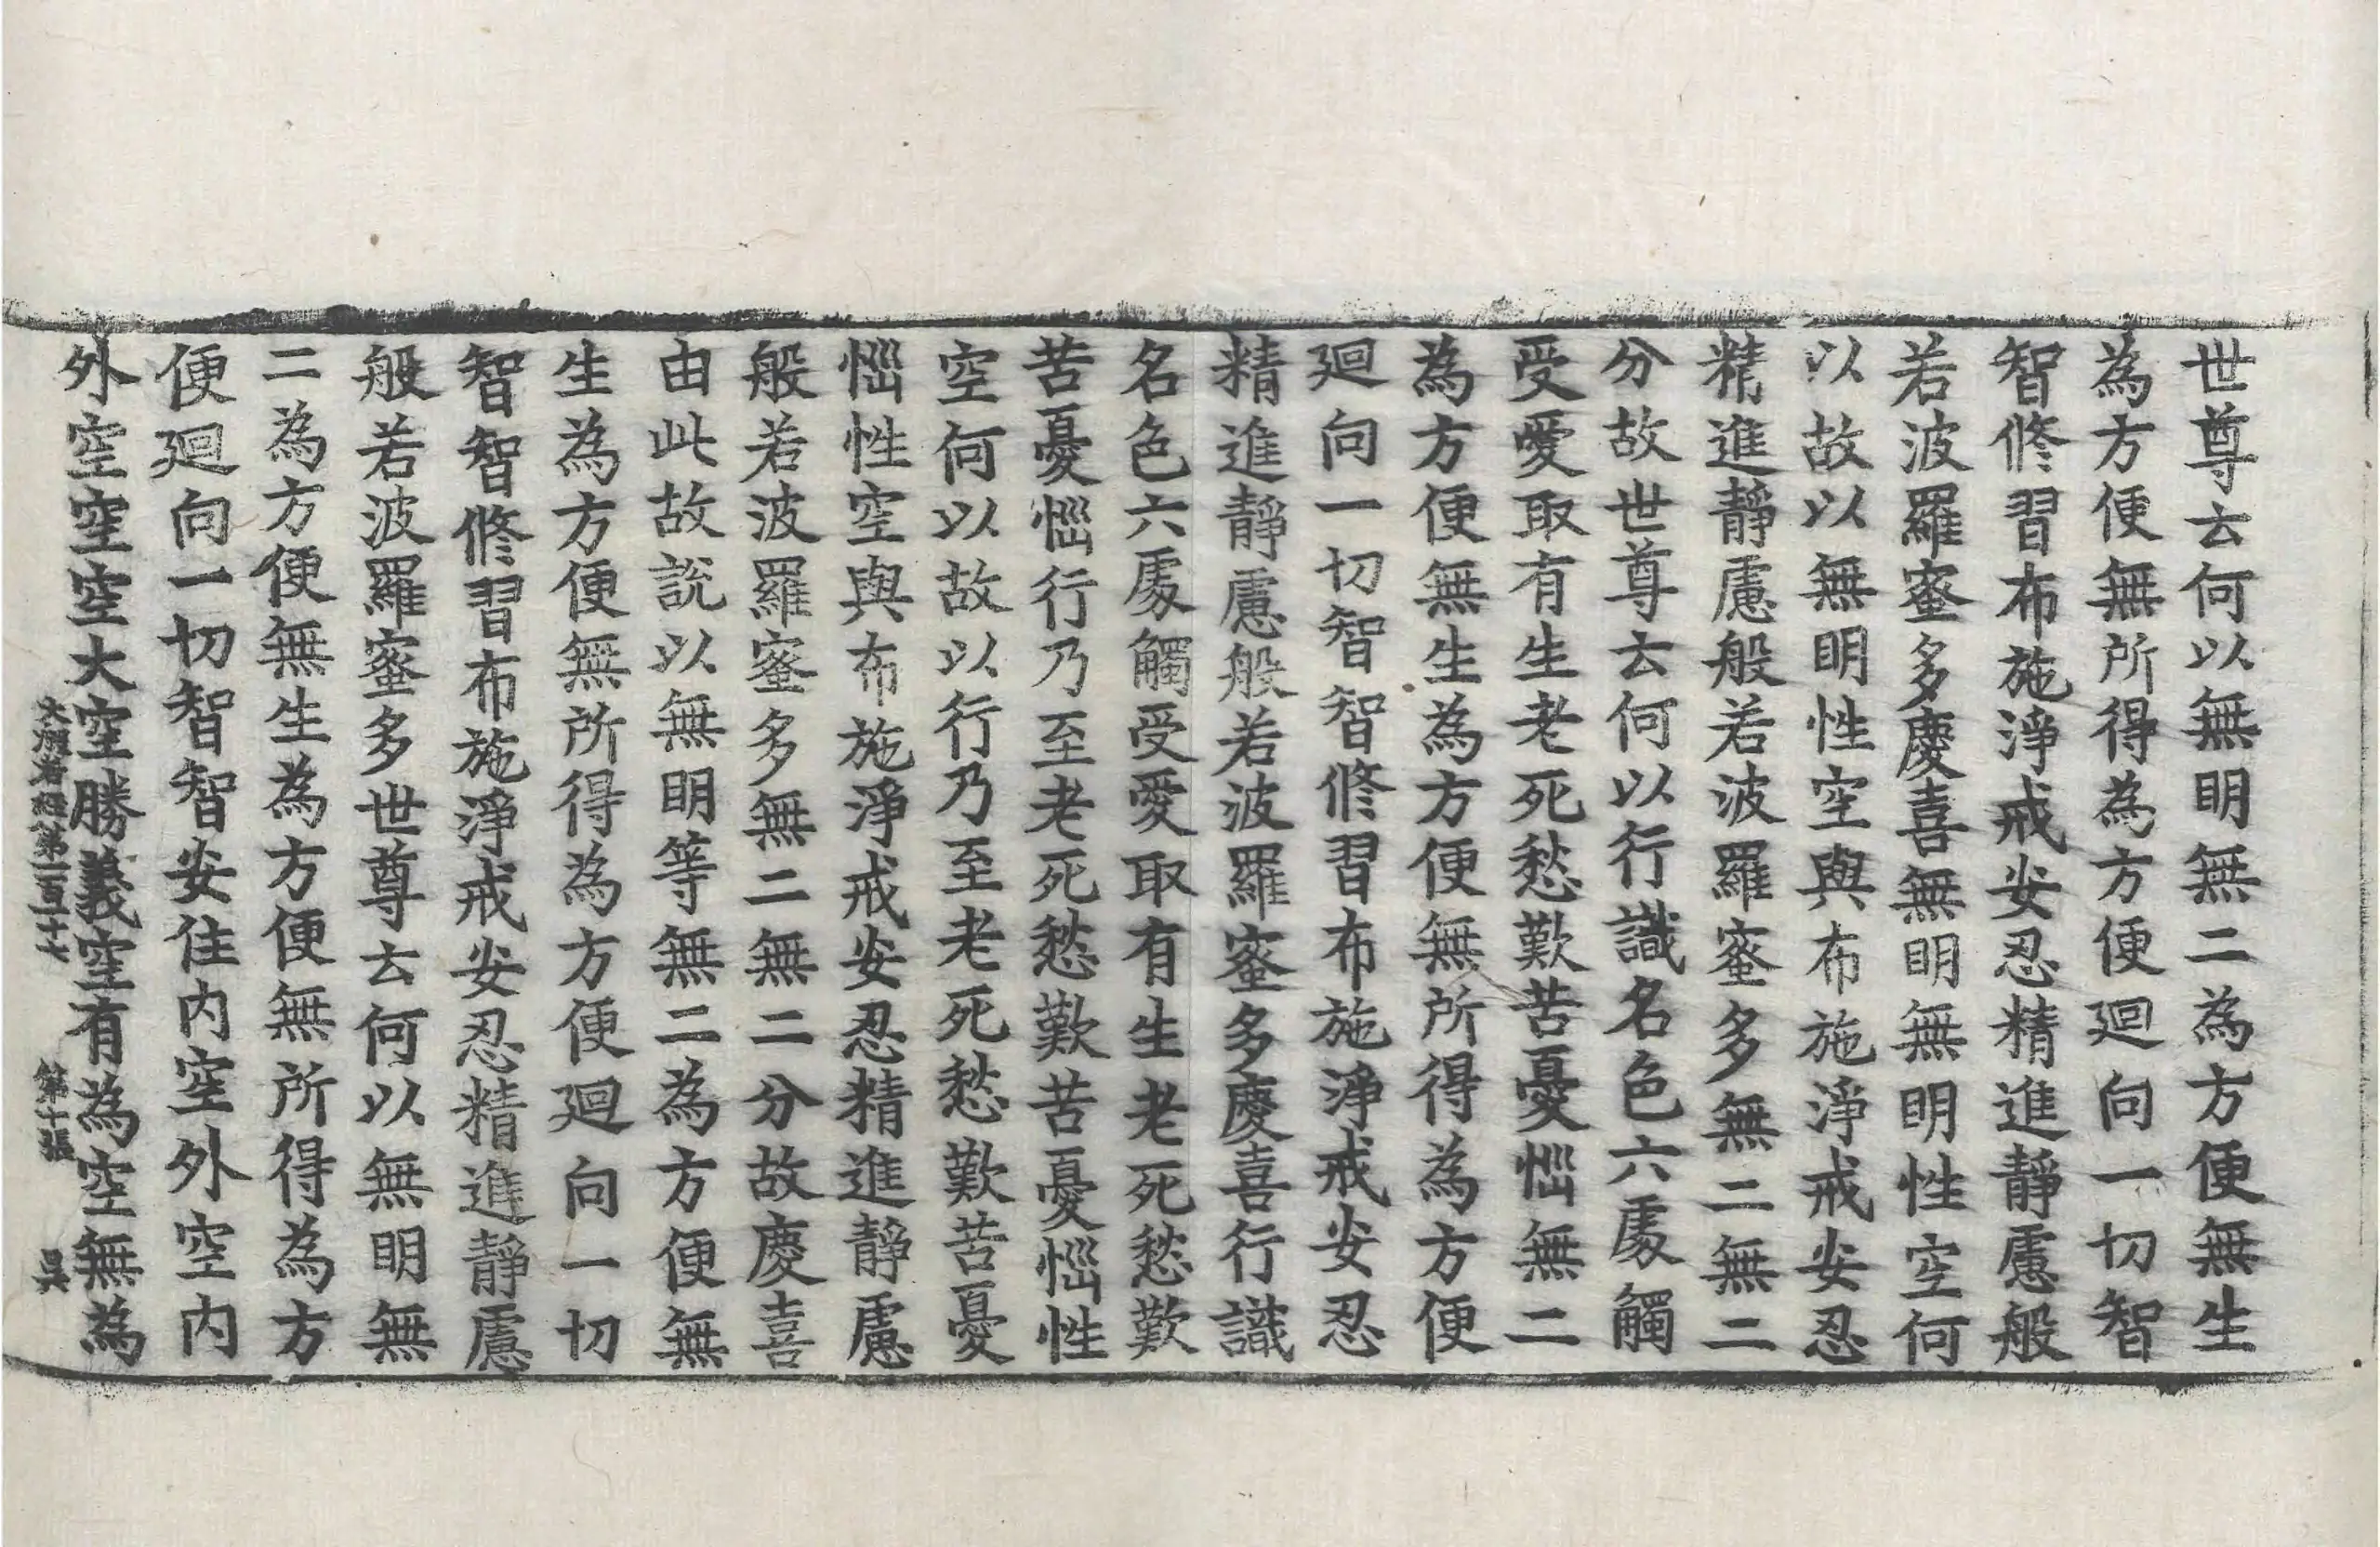 世尊云何以無明無二為方便無生
為方便無所得為方便廻向一切智
智修習布施淨戒安忍精進靜慮般
若波羅蜜多慶喜無明無明性空何
以故以無明性空與布施淨戒安忍
精進靜慮般若波羅蜜多無二無二
分故世尊云何以行識名色六處觸
受愛取有生老死愁歎苦憂惱無二
為方便無生為方便無所得為方便
廻向一切智智修習布施淨戒安忍
精進靜慮般若波羅蜜多慶喜行識
名色六處觸受愛取有生老死愁歎
苦憂惱行乃至老死愁歎苦憂惱性
空何以故以行乃至老死愁歎苦憂
惱性空與布施淨戒安忍精進靜慮
般若波羅蜜多無二無二分故慶喜
由此故說以無明等無二為方便無
生為方便無所得為方便廻向一切
智智修習布施淨戒安忍精進靜慮
般若波羅蜜多世尊云何以無明無
二為方便無生為方便無所得為方
便廻向一切智智安住內空外空內
外空空空大空勝義空有為空無為
大般若經第一百二十七 第十張 昃